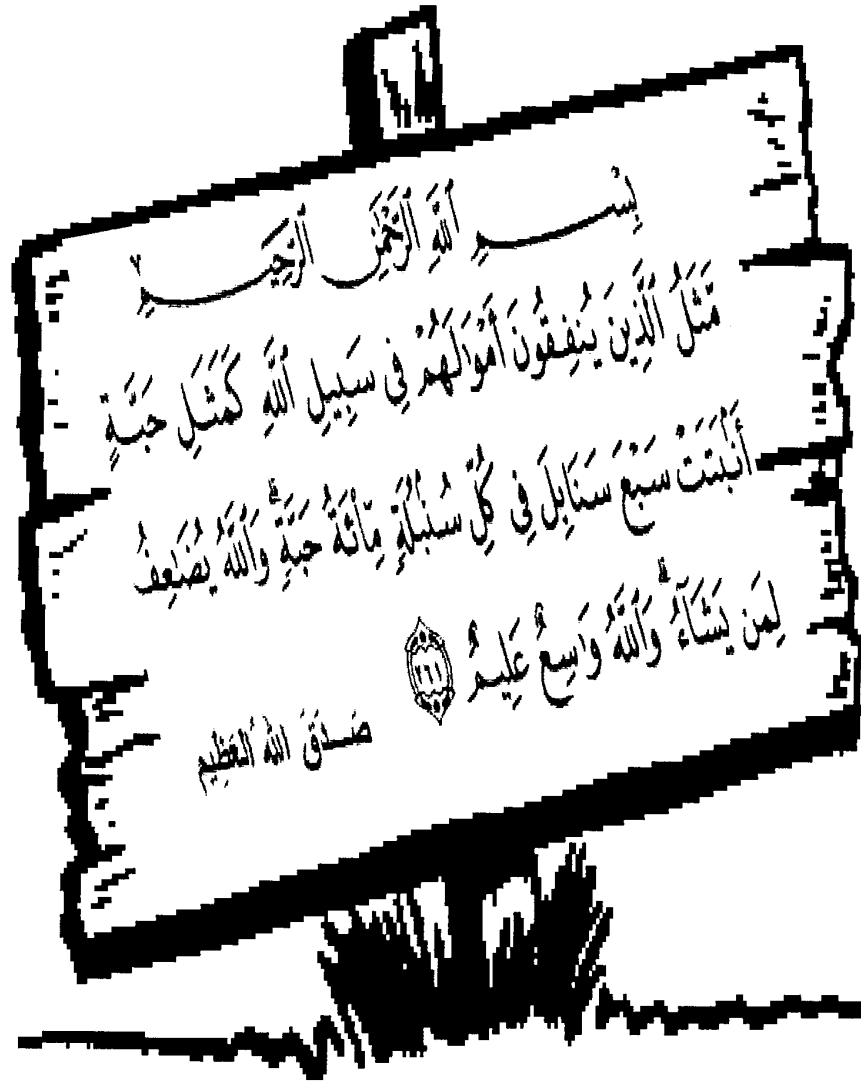 بِسْمِ ٱللَّهِ ٱلرَّحْمَٰنِ ٱلرَّحِيمِ
مَّثَلُ ٱلَّذِينَ يُنفِقُونَ أَمْوَٰلَهُمْ فِى سَبِيلِ ٱللَّهِ كَمَثَلِ حَبَّةٍ
أَنۢبَتَتْ سَبْعَ سَنَابِلَ فِى كُلِّ سُنۢبُلَةٍ مِّا۟ئَةُ حَبَّةٍ ۗ وَٱللَّهُ يُضَٰعِفُ
لِمَن يَشَآءُ ۗ وَٱللَّهُ وَٰسِعٌ عَلِيمٌ ٢٦١
صَدَقَ الله ٱلعَظِيم